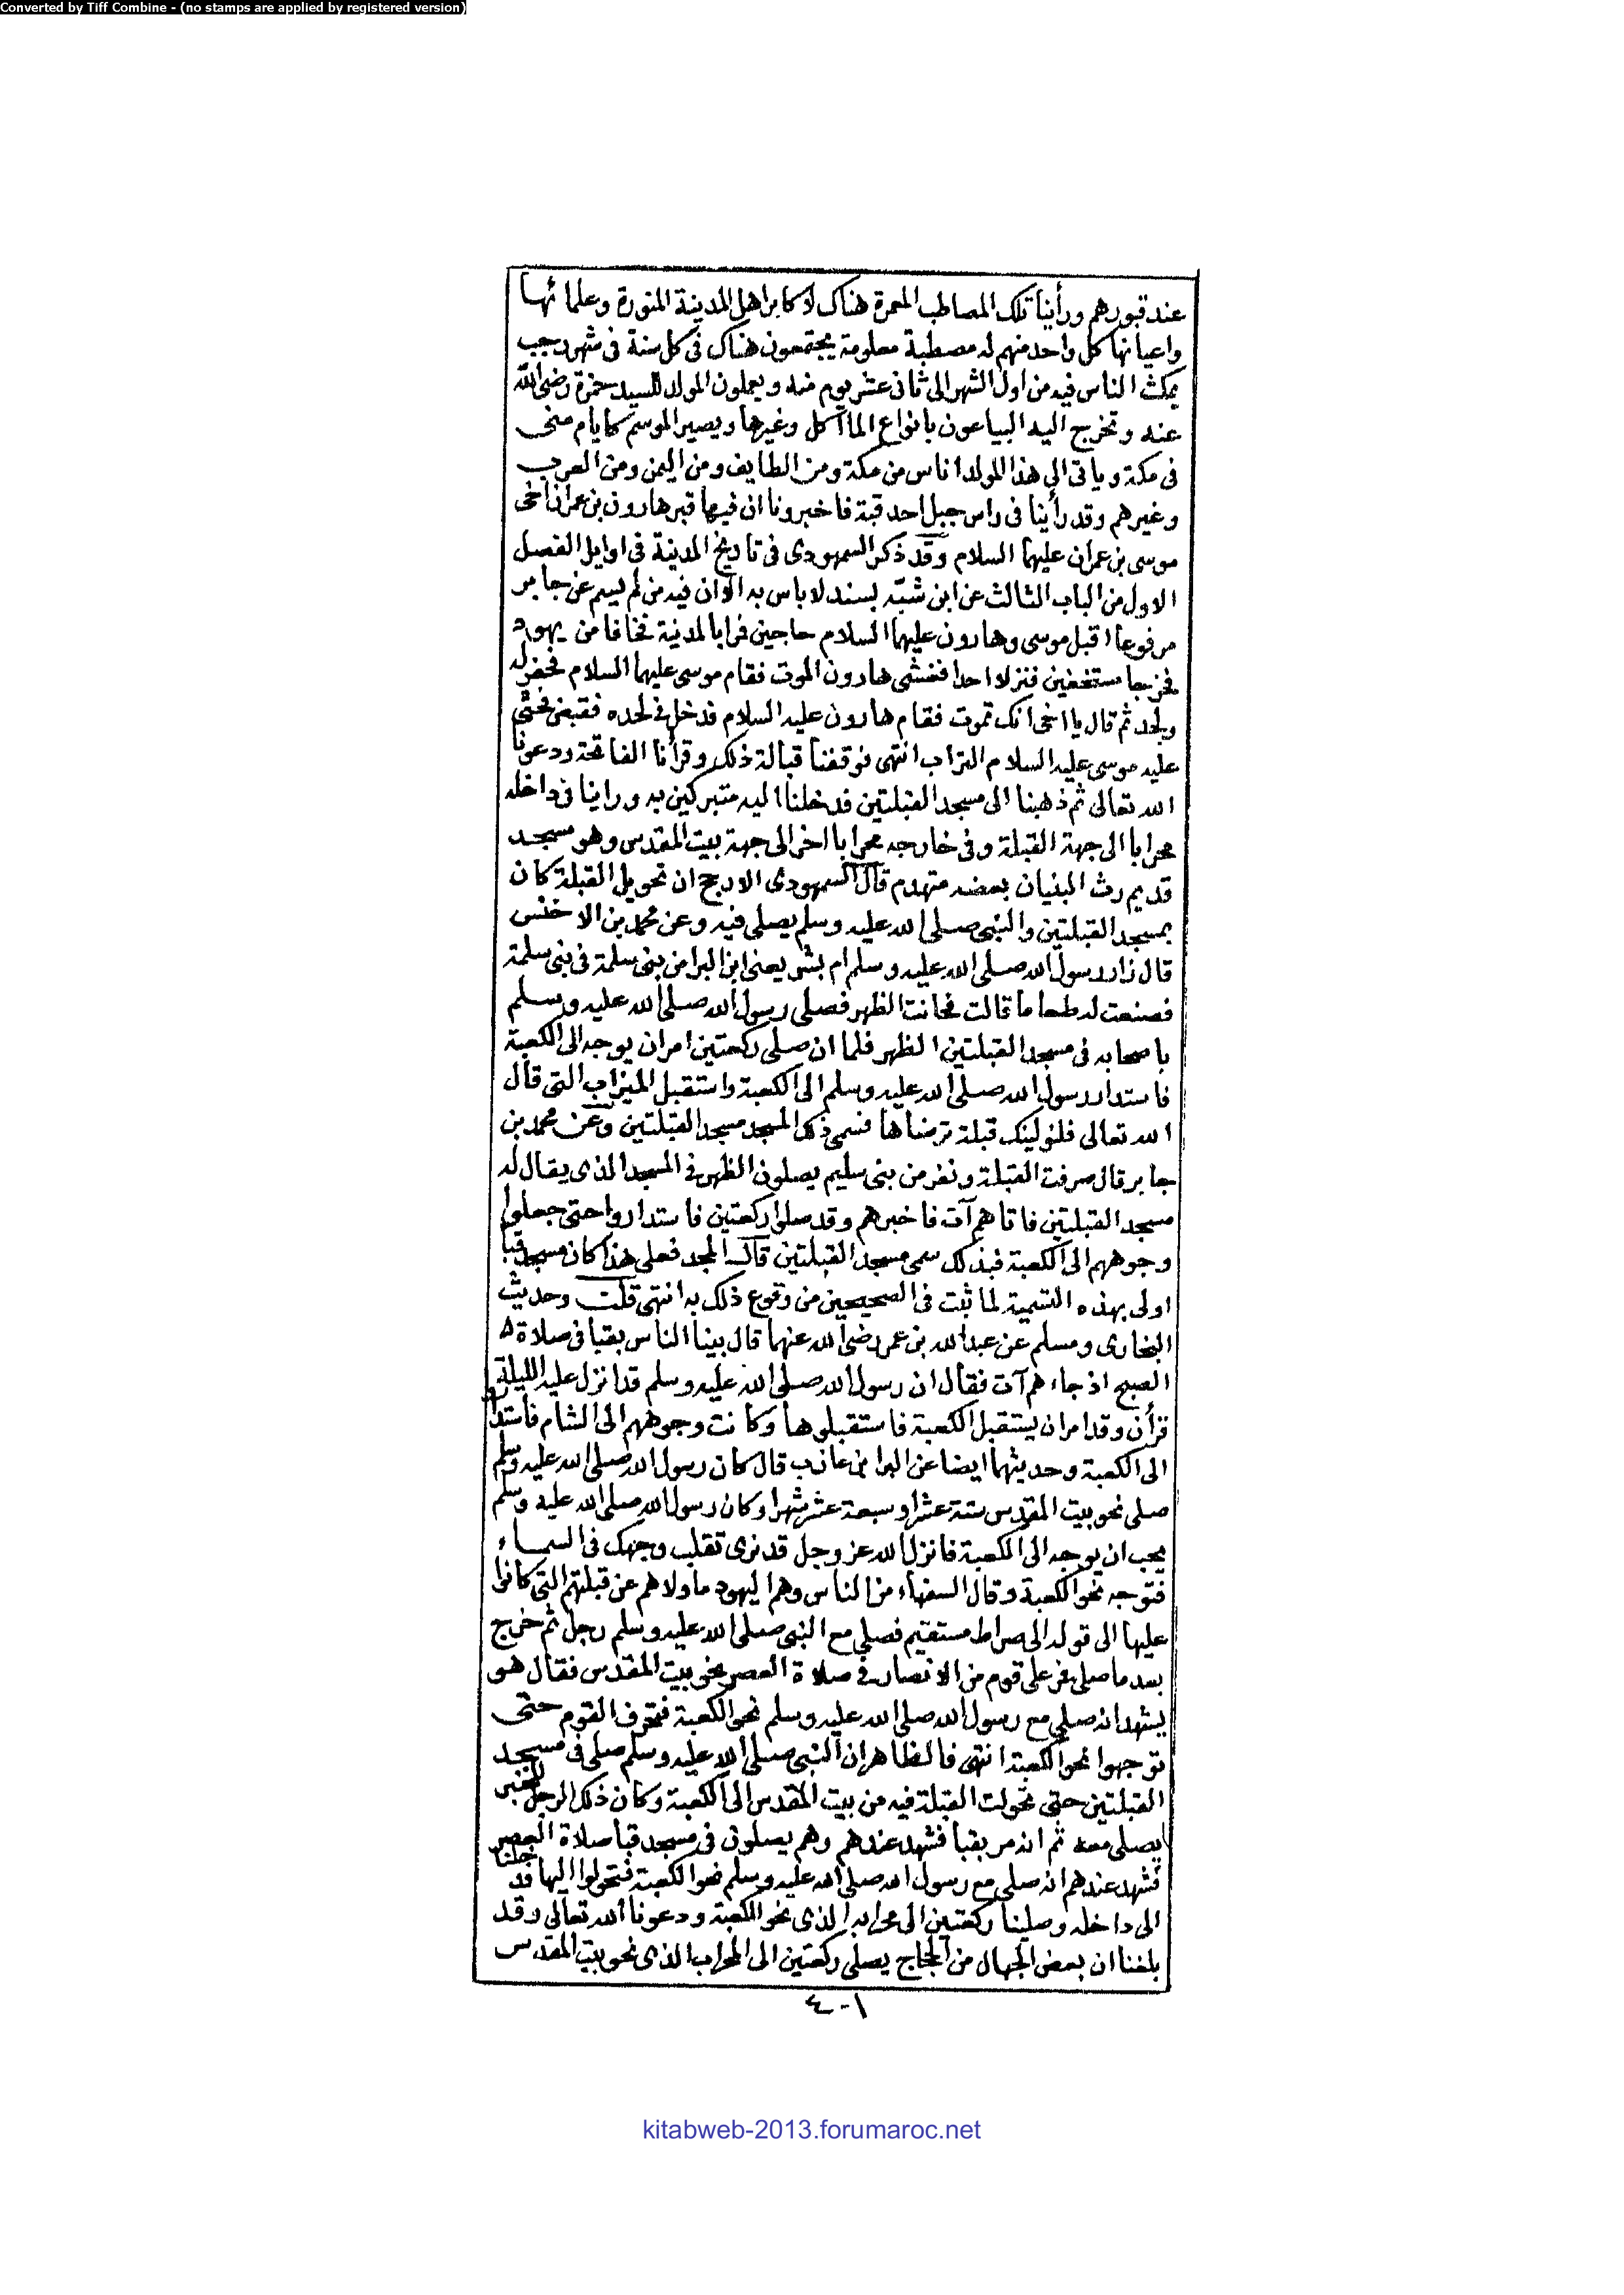 Converted by Tiff Combine - (no stamps are applied by registered version)
عند قبورهم ورأينا تلك المصاطب المعمرة هناك لاكابر اهل المدينة المنورة وعلمائها
واعيانها كل واحد منهم له مصطبة معلومة يجتمعون هناك فى كل سنة فى شهر رجب
يمكث الناس فيه من اول الشهر الى ثانى عشر يوم منه ويعملون المولد للسيد حمزة رضى الله
عنه وتخرج اليه البياعون بانواع المآكل وغيرها ويصير الموسم كايام منى
فى مكة وياتى الى هذا المولد اناس من مكة ومن الطايف ومن اليمن ومن العرب
وغيرهم وقد رأينا فى راس جبل احد قبة فاخبرونا ان فيها قبر هارون بن عمران اخى
موسى بن عمران عليهما السلام وقد ذكر السمهودى فى تاريخ المدينة فى اوايل الفصل
الاول من الباب الثالث عن ابن شبّه بسند لا باس به الا ان فيه من لم يسم عن جابر
مرفوعا اقبل موسى وهارون عليهما السلام حاجين فمرا بالمدينة فخافا من يهود
فخرجا مستخفين فنزلا احدا فغشى هارون الموت فقام موسى عليهما السلام فحفر له
ولحد ثم قال يا اخى انك تموت فقام هارون عليه السلام فدخل فى لحده فقبض فحثى
عليه موسى عليه السلام التراب انتهى فوقفنا قبالة ذلك وقرأنا الفاتحة ودعونا
الله تعالى ثم ذهبنا الى مسجد القبلتين فدخلنا اليه متبركين به وراينا فى داخله
محرابا الى جهة القبلة وفى خارجه محرابا اخر الى جهة بيت المقدس وهو مسجد
قديم رث البنيان بعضه متهدم قال السمهودى الارجح ان تحويل القبلة كان
بمسجد القبلتين والنبى صلى الله عليه وسلم يصلى فيه وعن محمد بن الاخنس
قال زار رسول الله صلى الله عليه وسلم ام بشر يعنى ابن البرا من بنى سلمة فى بنى سلمة
فصنعت له طعاما قالت فحانت الظهر فصلى رسول الله صلى الله عليه وسلم
باصحابه فى مسجد القبلتين الظهر فلما ان صلى ركعتين امر ان يوجه الى الكعبة
فاستدار رسول الله صلى الله عليه وسلم الى الكعبة واستقبل الميزاب التى قال
الله تعالى فلنولينك قبلة ترضاها فسمى ذلك المسجد مسجد القبلتين وعن محمد بن
جابر قال صرفت القبلة ونفر من بنى سليم يصلون الظهر فى المسجد الذى يقال له
مسجد القبلتين فاتاهم آت فاخبرهم وقد صلوا ركعتين فاستداروا حتى جعلوا
وجوههم الى الكعبة فبذلك سمى مسجد القبلتين قال المجد فعلى هذا كان مسجد قبا
اولى بهذه التسمية لما ثبت فى الصحيحين من وقوع ذلك به انتهى قلت وحديث
البخارى ومسلم عن عبد الله بن عمر رضى الله عنهما قال بينا الناس بقبا فى صلاة
الصبح اذ جاءهم آت فقال ان رسول الله صلى الله عليه وسلم قد انزل عليه الليلة
قرأن وقد امر ان يستقبل الكعبة فاستقبلوها وكانت وجوههم الى الشام فاستداروا
الى الكعبة وحديثهما ايضا عن البرا بن عازب قال كان رسول الله صلى الله عليه وسلم
صلى نحو بيت المقدس ستة عشر او سبعة عشر شهرا وكان رسول الله صلى الله عليه وسلم
يحب ان يوجه الى الكعبة فانزل الله عز وجل قد نرى تقلب وجهك فى السماء
فتوجه نحو الكعبة وقال السفهاء من الناس وهم اليهود ما ولاهم عن قبلتهم التى كانوا
عليها الى قوله الى صراط مستقيم فصلى مع النبى صلى الله عليه وسلم رجل ثم خرج
بعد ما صلى فمر على قوم من الانصار فى صلاة العصر نحو بيت المقدس فقال هو
يشهد انه صلى مع رسول الله صلى الله عليه وسلم نحو الكعبة فتحرف القوم حتى
توجهوا نحو الكعبة انتهى فالظاهر ان النبى صلى الله عليه وسلم صلى فى مسجد
القبلتين حتى تحولت القبلة فيه من بيت المقدس الى الكعبة وكان ذلك الرجل المخبر
يصلى معه ثم انه مر بقبا فشهد عندهم وهم يصلون فى مسجد قبا صلاة العصر
فشهد عندهم انه صلى مع رسول الله صلى الله عليه وسلم نحو الكعبة فتحولوا اليها فدخلنا
الى داخله وصلينا ركعتين الى محرابه الذى نحو الكعبة ودعونا الله تعالى وقد
بلغنا ان بعض الجهال من الحجاج يصلى ركعتين الى المحراب الذى نحو بيت المقدس
٤٠١
kitabweb-2013.forumaroc.net